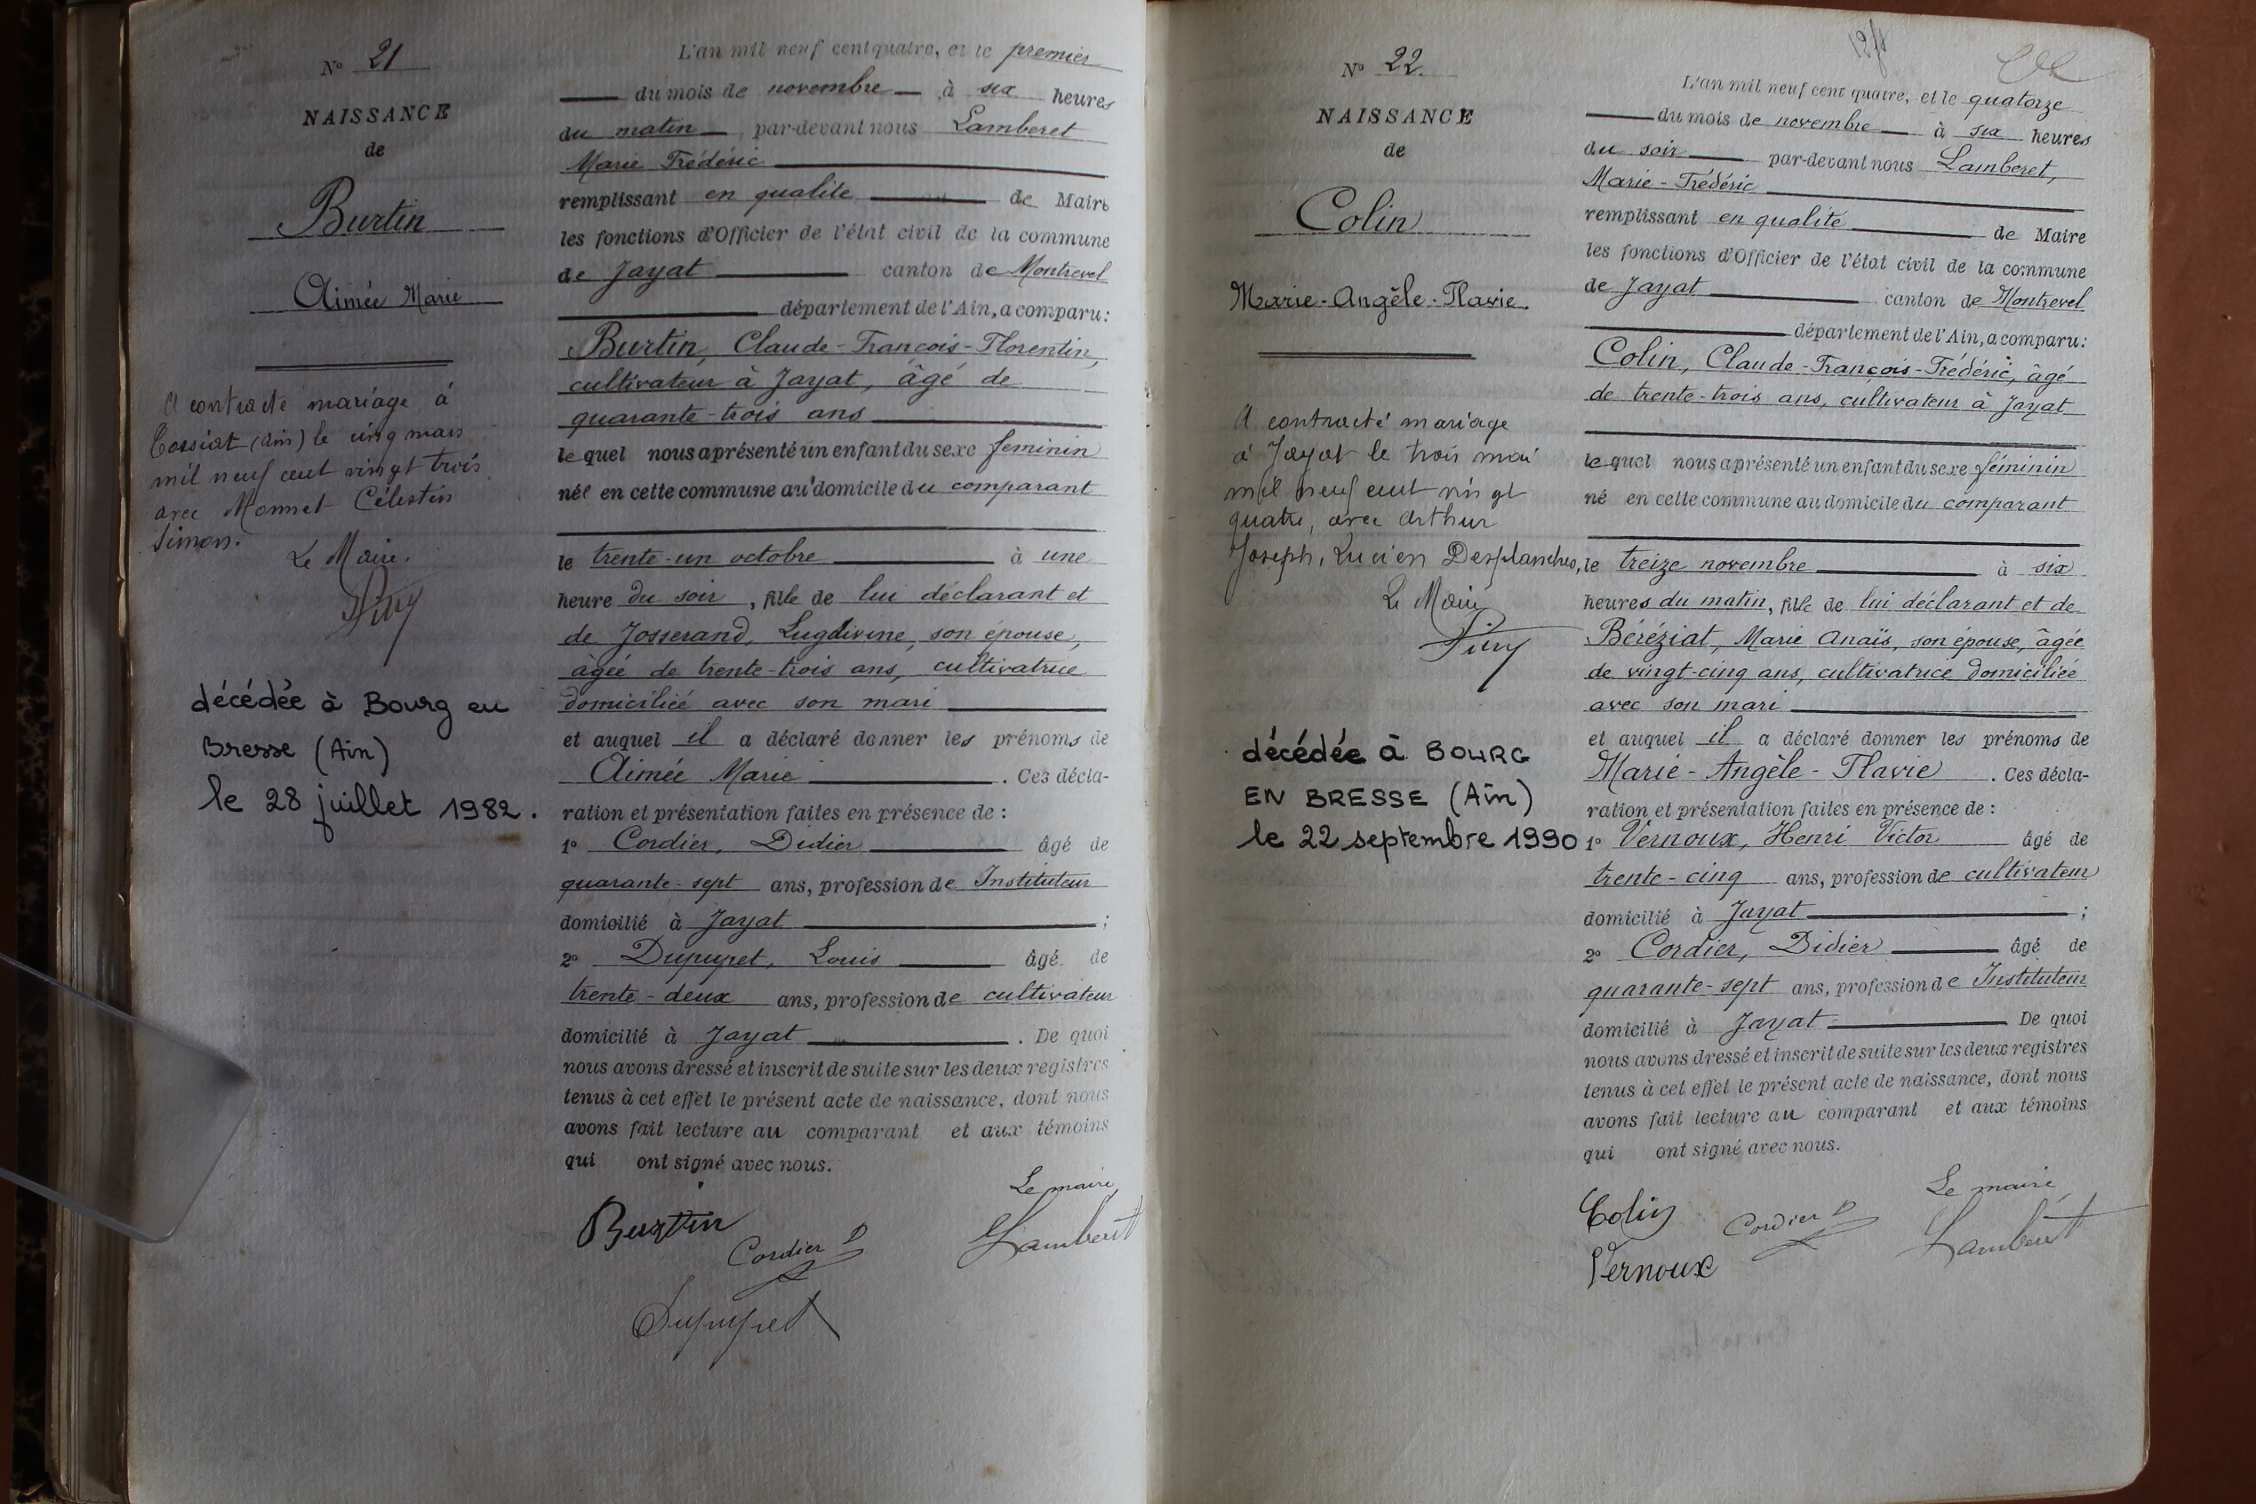 N° 21
NAISSANCE
de
Burtin
Aimée Marie
A contracté mariage à
(Ain) le cinq mars
mil neuf cent vingt trois
avec Monnet Célestin
Simon.
Le Maire.
décédée à Bourg en
Bresse (Ain)
le 28 juillet 1982.
L'an mil neuf cent quatre, et le premier
du mois de novembre à six heures
du matin, par-devant nous Lamberet
Marie Frédéric
remplissant en qualité de Maire
les fonctions d'Officier de l'état civil de la commune
de Jayat canton de Montrevel
département de l'Ain, a comparu:
Burtin, Claude-François-Florentin,
cultivateur à Jayat, âgé de
quarante-trois ans
lequel nous a présenté un enfant du sexe feminin
née en cette commune au domicile du comparant
le trente-un octobre à une
heure du soir, fille de lui déclarant et
de Josserand, Lugdivine, son épouse,
âgée de trente-trois ans, cultivatrice
domiciliée avec son mari
et auquel il a déclaré donner les prénoms de
Aimée Marie. Ces décla-
ration et présentation faites en présence de:
1° Cordier, Didier âgé de
quarante-sept ans, profession de Instituteur
domicilié à Jayat;
2° Dupupet, Louis âgé de
trente-deux ans, profession de cultivateur
domicilié à Jayat. De quoi
nous avons dressé et inscrit de suite sur les deux registres
tenus à cet effet le présent acte de naissance, dont nous
avons fait lecture au comparant et aux témoins
qui ont signé avec nous.
Le maire
Burtin Cordier D Lamberet
Dupupet
N° 22
NAISSANCE
de
Colin
Marie-Angèle-Flavie.
A contracté mariage
à Jayat le trois mai
mil neuf cent vingt
quatre, avec Arthur
Joseph, Lucien Desplanches,
Le Maire
décédée à BOURG
EN BRESSE (Ain)
le 22 septembre 1990
L'an mil neuf cent quatre, et le quatorze
du mois de novembre à six heures
du soir par-devant nous Lamberet,
Marie-Frédéric
remplissant en qualité de Maire
les fonctions d'Officier de l'état civil de la commune
de Jayat canton de Montrevel
département de l'Ain, a comparu:
Colin, Claude-François-Frédéric, âgé
de trente-trois ans, cultivateur à Jayat
lequel nous a présenté un enfant du sexe féminin
né en cette commune au domicile du comparant
le treize novembre à six
heures du matin, fille de lui déclarant et de
Béréziat, Marie Anaïs, son épouse, âgée
de vingt-cinq ans, cultivatrice domiciliée
avec son mari
et auquel il a déclaré donner les prénoms de
Marie-Angèle-Flavie. Ces décla-
ration et présentation faites en présence de:
1° Vernoux, Henri Victor âgé de
trente-cinq ans, profession de cultivateur
domicilié à Jayat;
2° Cordier, Didier âgé de
quarante-sept ans, profession de Instituteur
domicilié à Jayat De quoi
nous avons dressé et inscrit de suite sur les deux registres
tenus à cet effet le présent acte de naissance, dont nous
avons fait lecture au comparant et aux témoins
qui ont signé avec nous.
Le maire
Colin Cordier D Lamberet
Vernoux